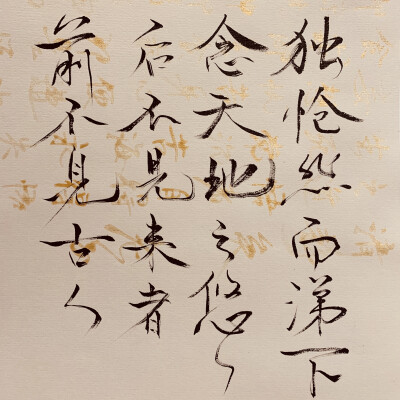 前不見古人
后不見来者
念天地之悠々
独怆然而涕下